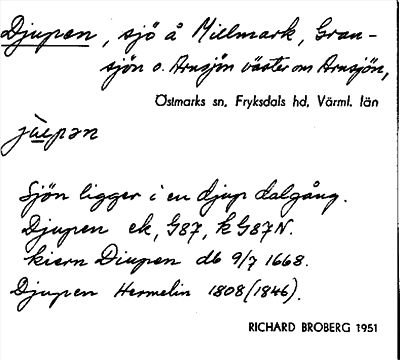 Djupen, sjö å Millmark, Gran-
sjön o. Arnsjön väster om Arnsjön,
Östmarks sn, Fryksdals hd, Värml. län
jùpən
Sjön ligger i en djup dalgång.
Djupen ek, G87, kG87N.
kiern Diupen db 9/7 1668.
Djupen Hermelin 1808 (1846).
RICHARD BROBERG 1951